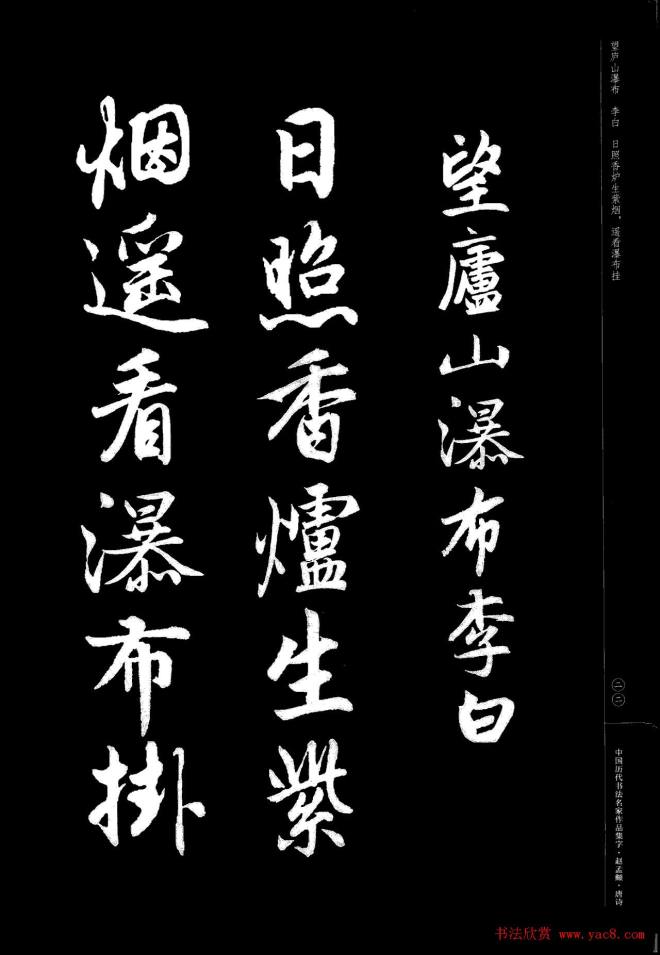 望庐山瀑布　李白　日照香炉生紫烟，遥看瀑布挂
二二
中国历代书法名家作品集字·赵孟頫·唐诗
望廬山瀑布李白
日照香爐生紫
烟遥看瀑布掛
书法欣赏 www.yac8.com